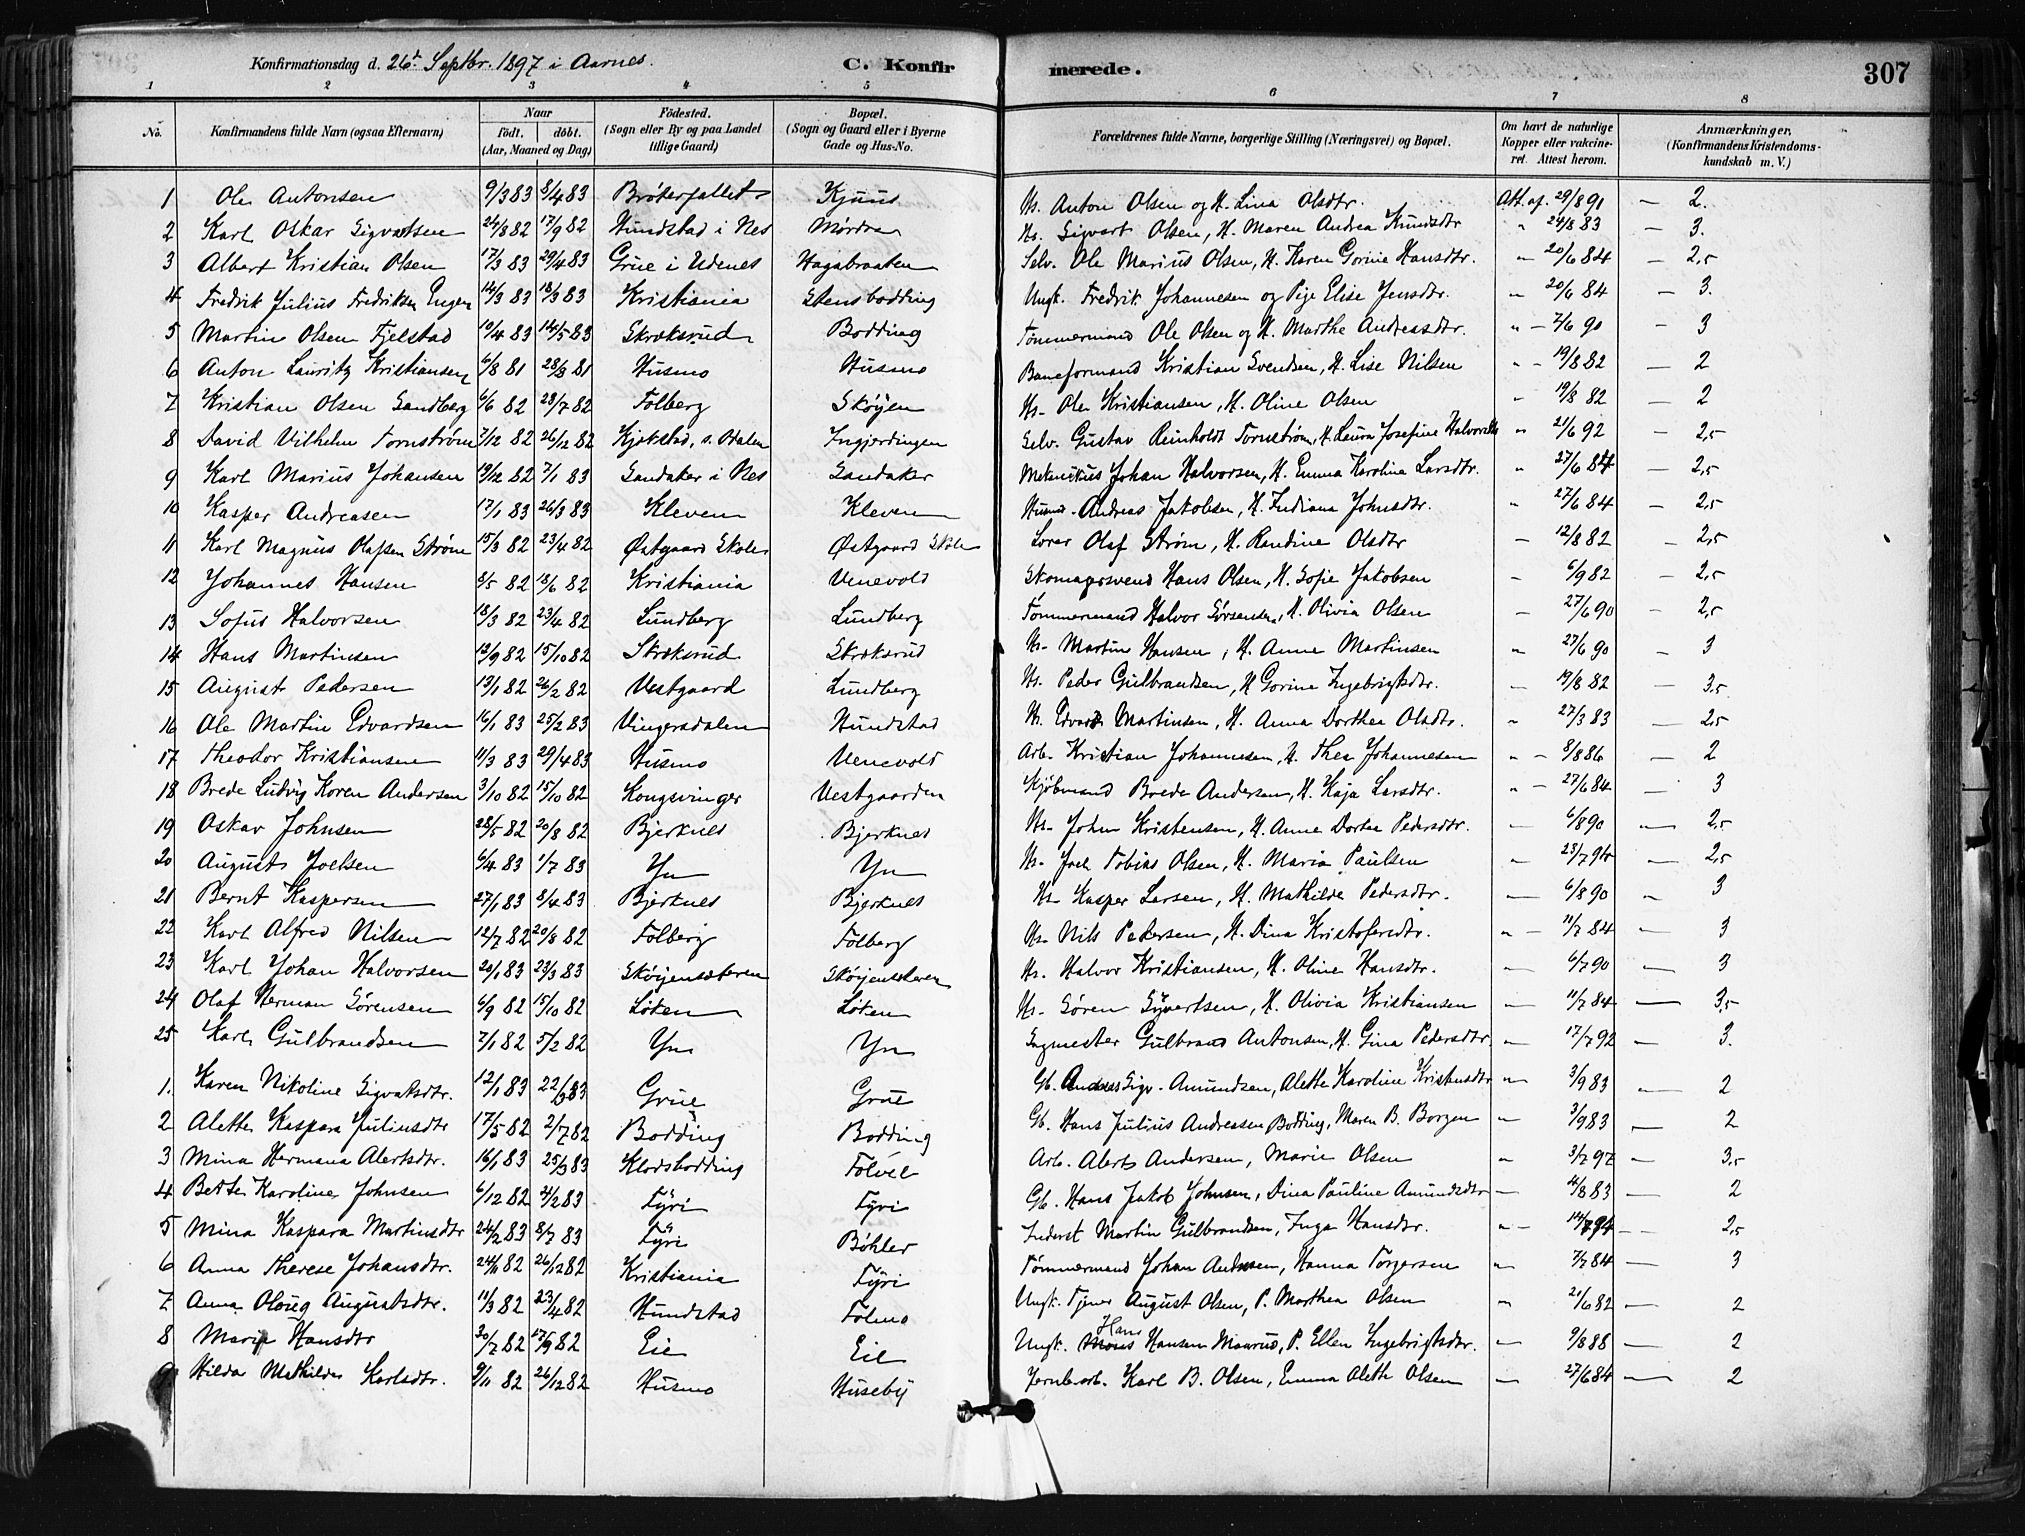 Konfirmationsdag d. 26de Septbr. 1897 i Aarnes. C. Konfirmerede. 307
1 2 3 4 5 6 7 8
No. Konfirmandens fulde Navn (ogsaa Efternavn) Naar født. døbt. (Aar, Maaned og Dag) Fødested. (Sogn eller By og paa Landet tillige Gaard) Bopæl. (Sogn og Gaard eller i Byerne Gade og Hus-No. Forældrenes fulde Navne, borgerlige Stilling (Næringsvei) og Bopæl. Om havt de naturlige Kopper eller vaccineret. Attest herom. Anmærkninger. (Konfirmandens Kristendomskundskab m. V.)
1 Ole Antonsen 9/3 83 8/4 83 Brøterfallet Kjuus Hs. Anton Olsen og H. Lina Olsdtr. Att. af. 29/8 91 — 2.
2 Karl Oskar Sigvartsen 24/8 82 17/9 82 Hundstad i Nes Mørdre Hs. Sigvart Olsen, H. Maren Andrea Knudsdtr " 24/8 83 — 3.
3 Albert Kristian Olsen 17/3 83 29/4 83 Grue i Udenes Hagabraaten Selv. Ole Marius Olsen, H. Karen Gorine Hansdtr. " 20/6 84 — 2,5
4 Fredrik Julius Fredriksen Engen 14/3 83 18/3 83 Kristiania Stensbodding Ungk. Fredrik Johannesen og Pige Elise Jensdtr. " 20/6 84 — 3.
5 Martin Olsen Fjelstad 10/4 83 14/5 83 Skroksrud Bodding Tømmermand Ole Olsen og H. Marthe Andreasdtr. " 7/6 90 — 3
6 Anton Lauritz Kristiansen 6/8 81 28/8 81 Husmo Husmo Baneformand Kristian Svendsen, H. Lise Nilsen " 19/8 82 — 2
7 Kristian Olsen Sandberg 6/6 82 28/7 82 Folberg Skøyen Hs. Ole Kristiansen, H. Oline Olsen " 19/8 82 — 2
8 David Vilhelm Tornstrøm 7/12 82 26/12 82 Kjølstad, s. Odalen Ingjerdingen Selv. Gustav Reinholdt Tornstrøm, H. Laura Josefine Halvorsdtr " 21/6 92 — 2,5
9 Karl Marius Johansen 19/12 82 7/1 83 Sandaker i Nes Sandaker Mekanikus Johan Halvorsen, H. Emma Karoline Larsdtr. " 27/6 84 — 2,5
10 Kasper Andreasen 17/1 83 26/3 83 Kleven Kleven Husmd. Andreas Jakobsen, H. Indiana Johnsdtr. " 27/6 84 — 2,5
11 Karl Magnus Olafsen Strøm 15/3 82 23/4 82 Østgaard Skole Østgaard Skole Lærer Olaf Strøm, H. Randine Olsdtr — 12/8 82 — 2,5
12 Johannes Hansen 8/5 82 18/6 82 Kristiania Venevold Skomagersvend Hans Olsen, H. Sofie Jakobsen — 6/9 82 — 2,5
13 Sofus Halvorsen 18/3 82 23/4 82 Lundberg Lundberg Tømmermand Halvor Sørensen, H. Olivia Olsen — 27/6 90 — 2,5
14 Hans Martinsen 13/9 82 15/10 82 Skroksrud Skroksrud Hs. Martin Hansen, H. Anne Martinsen " 27/6 90 — 3
15 August Pedersen 19/1 82 26/2 82 Vestgaard Lundberg Hs. Peder Gulbrandsen, H Gorine Ingebrigtsdtr. — 19/8 82 — 3,5
16 Ole Martin Edvardsen 16/1 83 25/2 83 Vingersdalen Hundstad Hs. Edvard Martinsen, H. Anna Dorthea Olsdtr. " 27/3 83 — 2,5
17 Theodor Kristiansen 11/3 83 29/4 83 Husmo Venevold Arb. Kristian Johannesen, H. Thea Johannesen " 8/8 86 — 2
18 Brede Ludvig Koren Andersen 3/10 82 15/10 82 Kongsvinger Vestgaarden Kjøbmand Brede Andersen, H. Kaja Larsdtr. " 27/6 84 — 3
19 Oskar Johnsen 28/5 82 20/8 82 Bjerknes Bjerknes Hs. John Kristensen, H. Anne Dortea Pedersdtr. — 6/8 90 — 2,5
20 August Joelsen 6/4 83 1/7 83 Yn Yn Hs. Joel Tobias Olsen, H. Maria Paulsen " 23/7 94 — 2,5
21 Bernt Kaspersen 27/1 83 8/4 83 Bjerknes Bjerknes Hs. Kasper Larsen, H. Mathilde Pedersdtr. — 6/8 90 — 3
22 Karl Alfred Nilsen 12/7 82 20/8 82 Folberg Folberg Hs. Nils Pedersen, H. Dina Kristofersdtr. " 11/7 84 — 3
23 Karl Johan Halvorsen 20/1 83 23/3 83 Skøyensæteren Skøyensæteren Hs. Halvor Kristiansen, H. Oline Hansdtr. — 6/7 90 — 3
24 Olaf Herman Sørensen 6/9 82 15/10 82 Løken Løken Hs. Søren Syvertsen, H. Olivia Kristiansen — 11/7 84 — 3,5
25 Karl Gulbrandsen 7/1 82 5/2 82 Yn Yn Sagmester Gulbrand Antonsen, H. Gina Pedersdtr. — 17/7 92 — 3.
1. Karen Nikoline Sigvatsdtr. 12/1 83 22/3 83 Grue Grue Gb. Andreas Sigv. Amundsen, Alette Karoline Kristensdtr " 3/9 83 — 2
2 Alette Kaspara Juliusdtr 17/5 82 2/7 82 Bodding Bodding Gb. Hans Julius Andreasen Bodding, Maren B. Borgen " 3/9 83 — 2
3 Mina Hermana Alertsdtr. 16/1 83 25/3 83 Klodsbodding Folvel Arb. Alert Andersen, Marie Olsen " 3/7 97 — 3,5
4 Berte Karoline Johnsen 6/12 82 2/2 83 Fyri Fyri Gb. Hans Jakob Johnsen, Dina Pauline Amundsdtr — 4/8 83 — 2
5 Mina Kaspara Martinsdtr 24/2 83 8/7 83 Fyri Bøhler Inderst Martin Gulbrandsen, Inga Hansdtr. " 14/7 94 — 2,5
6 Anna Therese Johansdtr. 24/11 82 26/12 82 Kristiania Fyri Tømmermand Johan Andersen, Hanna Torgersen " 7/7 84 — 3
7 Anna Oloug Augustsdtr. 11/3 82 23/4 82 Hundstad Folmo Ungk. Tjener August Olsen, P. Marthea Olsen " 21/6 82 — 2
8 Marie Hansdtr 30/7 82 17/9 82 Eie Eie Ungk. Hans Hansen Maurud, P. Ellen Ingebrigtsdtr. " 9/8 88 — 2
9 Hilda Mathilde Karlsdtr. 9/11 82 26/12 82 Husmo Huseby Jernb.arb. Karl B. Olsen, Emma Alette Olsen — 27/6 84 — 2